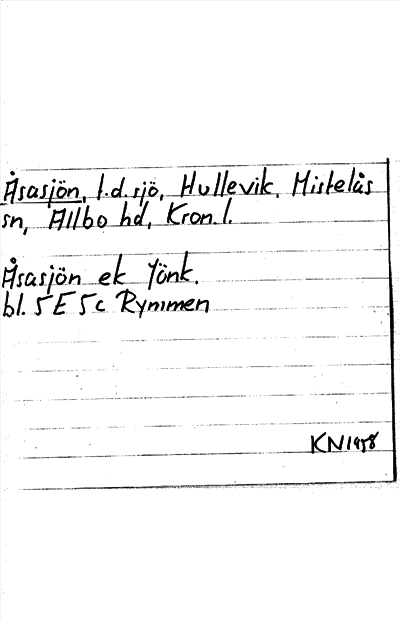 Åsasjön, f.d. sjö, Hullevik, Mistelås
sn, Allbo hd, Kron. l.
Åsasjön ek Jönk.
bl. 5E 5c Rymmen
KN 1958